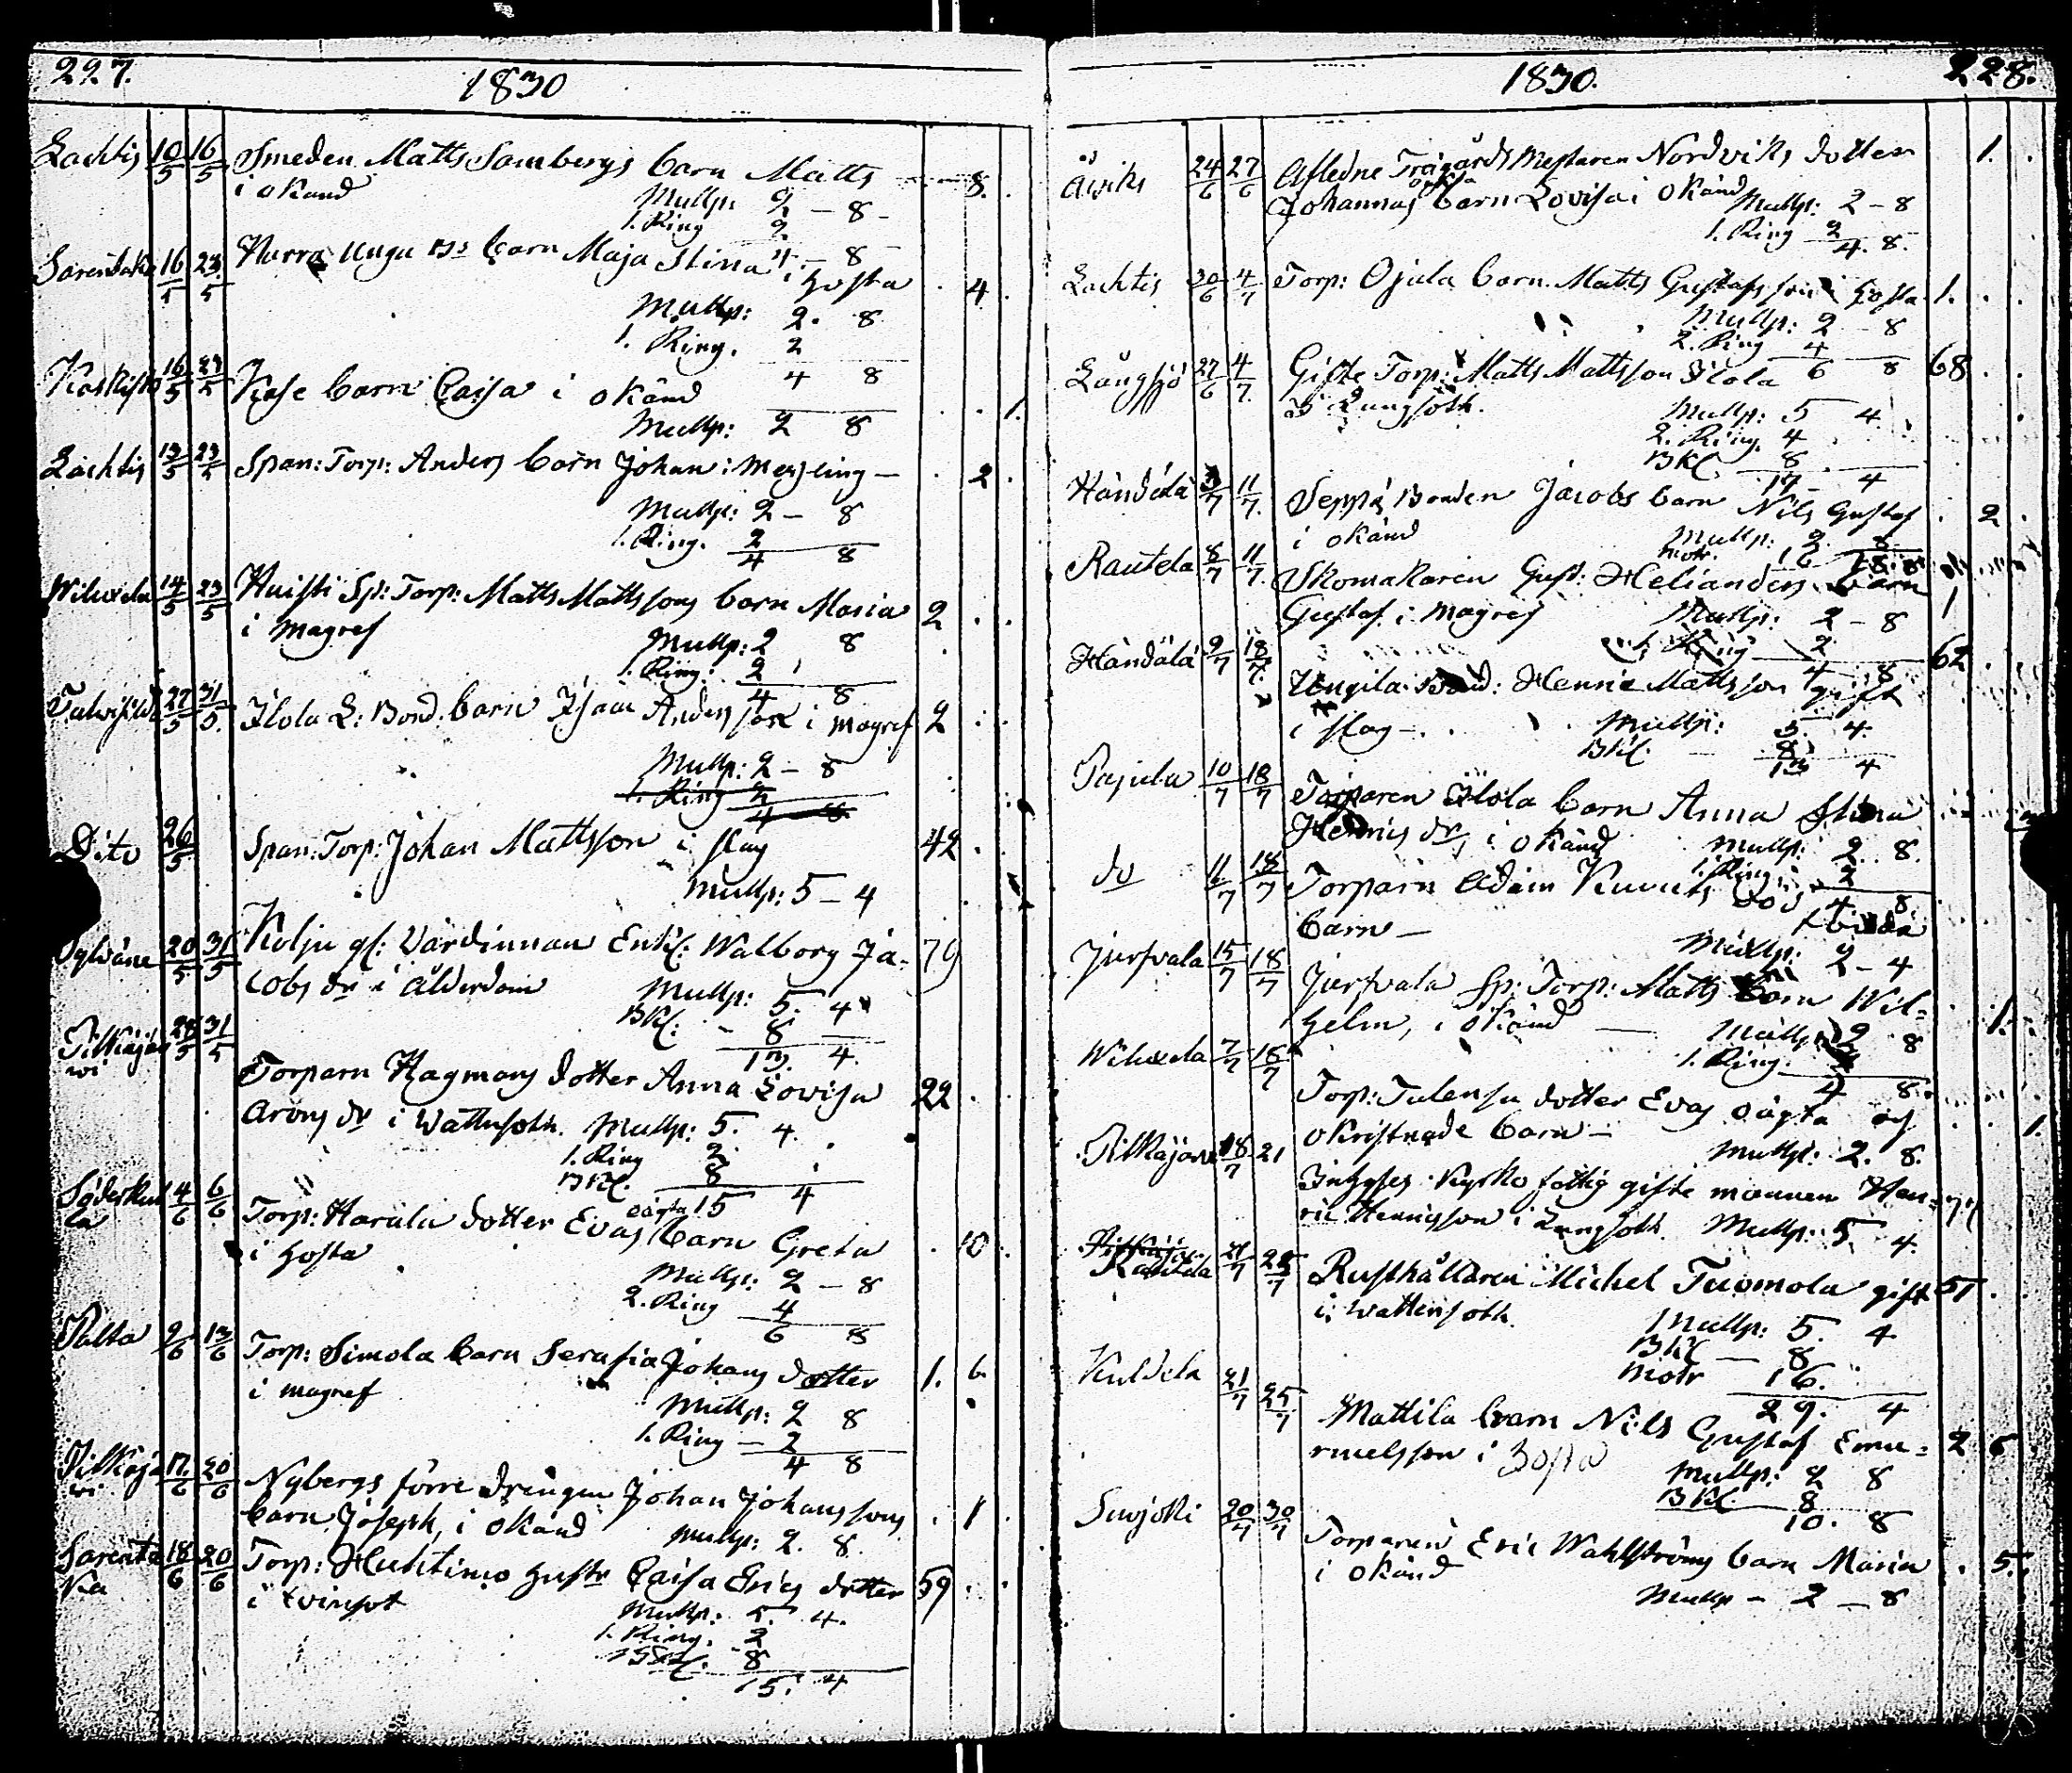 227.
1830
Lachtis 10/5 16/5 Smeden Matts Sambergs barn Matts — 8.
i okänd
Mullp: 2 - 8 -
1. Ring 2
4 - 8
16/5 23/5 Unga Bs barn Maja Stina
i hosta . 4 .
Mullp: 2. 8
1. Ring. 2
4 8
16/5 23/5 barn Caisa i okänd . . 1.
Mullp: 2 8
Lachtis 13/5 23/5 Span: Torp: Anders barn Johan i Messling — . 2 .
Mullp: 2 - 8
1. Ring. 2
4 8
Wilwela 14/5 23/5 Huisti Sp: Torp: Matts Mattssons barn Maria 2 . .
i magref
Mullp: 2 8
1. Ring: 2
4 8
27/5 31/5 Ilola L: Bond. barn Isaac Andersson i magref 2 . .
Mullp: 2 - 8
1. Ring 2
4 8
Dito 26/5 Span: Torp: Johan Mattsson i slag 42 .
Mullp: 5 - 4
20/5 31/5 Kolju gl: Värdinnan Enkl: Walborg Ja- 79
cobs dr i ålderdom
Mullp: 5. 4
BKl: - 8
13. 4.
Pitkäjär 28/5 31/5
wi
Torparn Hagmans dotter Anna Lovisa 22 .
Arons dr i Wattusoth. Mullp: 5. 4.
1. Ring 2.
BKl. 8
15 4
Söderkul 4/6 6/6 Torp: Harala dotter Evas oägta barn Greta . 10 .
la
i hosta
Mullp: 2 - 8
2. Ring 4
6 8
Palta 9/6 13/6 Torp: Simola barn Serafia Johans dotter 1. 6
i magref
Mullp: 2 8
1. Ring - 2
4 8
Pitkäjär 17/6 20/6 Nybergs förre drengen Johan Johanssons
wi
barn Joseph, i okänd . 1 .
Mullp: 2. 8.
Sarenta 18/6 20/6 Torp: Huhtimo hustr Caisa Erics dotter 59 . .
ka
i tvinsot
Mullp: 5. 4.
1. Ring. 2
BKl. 8
15. 4
1830.
228.
24/6 27/6 Afledne Trägårds Mestaren Nordviks dotter 1. .
Johannas barn Lovisa i okänd
Mullp: 2 - 8
1. Ring 2
4. 8.
Lachtis 30/6 4/7 Torp: Ojala barn Matts Gustafsson i hosta 1. . .
Mullp: 2 - 8
2. Ring 4
6 8
Långsjö 27/6 4/7. Gifte Torp: Matts Mattsson Ilola 68 . .
i Lungsoth.
Mullp: 5 4.
2. Ring. 4
BKl. 8
17 - 4
Händälä 3/7 11/7. Seppä Bonden Jacobs barn Nils Gustaf . 2 .
i okänd
Mullp: 2. 8
Motr. 16
Rautela 8/7 11/7. Skomakaren Gust: Helianders barn
Gustaf i magref 1
Mullp: 2 - 8
1. Ring 2
4 8
Händälä 9/7 18/7. Bond: Henric Mattsson gift 62 . .
i slag —.
Mullp: 5. 4.
BKl. 8
13 4
Pajula 10/7 18/7 Torparen Ilola barn Anna Stina
Henrics dr, i okänd
Mullp: 2. 8.
1. Ring: 2
4 8.
do 11/7 18/7 Torparn Adam död
barn —
Mullp: 2 - 4
Jursvala 15/7 18/7 Jursvala Sp: Torp: Matts barn Wil- . 1.
helm, i okänd —
Mullp: 2 8
1. Ring. 2
4 8.
Wilwela 7/7 18/7 Torp: Talensu dotter Evas oägta och
okristnade barn — . . 1.
Mullp: 2. 8.
18/7 21 Inhyses Kyrko fattig gifte mannen Hen-
ric Henricsson i Lungsoth. Mullp: 5 4.
Rautela 21/7 25/7 Rusthållaren Michel Tuomola gift 57 . .
i Wattensoth.
Mullp: 5. 4
BKl — 8
Motr 16.
29. 4
21/7 25/7 Mattila barn Nils Gustaf Ema- 2 6
nuelsson i hosta
Mullp: 2 8
BKl. 8
10. 8
Suojoki 20/7 30/7 Torparen Eric Wahlströms barn Maria . 5.
i okänd
Mullp - 2 - 8